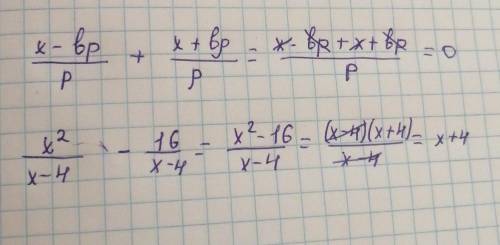 (x - вp)/p + (x + вp)/p = (x - вp + x + вp)/p = 0
x²/(x-4) - 16/(x-4) = (x² - 16)/(x-4) = (x-4)(x+4)/(x-4) = x+4